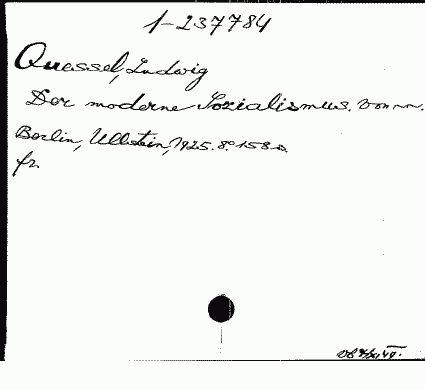 1-237784
Quessel, Ludwig
Der moderne Sozialismus. Von
Berlin, Ullstein, 1925. 8° 158 s.
fr.